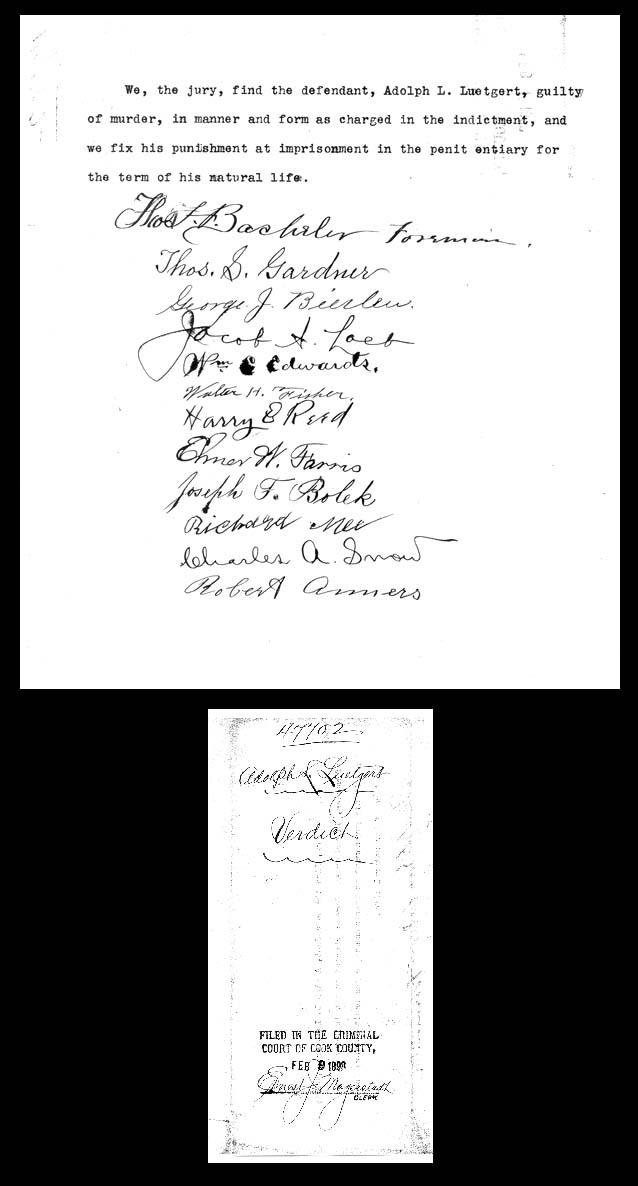 We, the jury, find the defendant, Adolph L. Luetgert, guilty
of murder, in manner and form as charged in the indictment, and
we fix his punishment at imprisonment in the penit entiary for
the term of his natural life.
Thos. F. Bacheler Foreman.
Thos. S. Gardner
George J. Bierlew.
Jacob A. Loeb
Wm C Edwards.
Walter H. Fisher.
Harry E Reed
Elmer W. Farris
Joseph F. Bolek
Richard Mee
Charles A. Snow
Robert Anners
47102
Adolph L. Luetgert
Verdict
FILED IN THE CRIMINAL
COURT OF COOK COUNTY,
FEB 9 1898
Ernest J. Magerstadt
CLERK